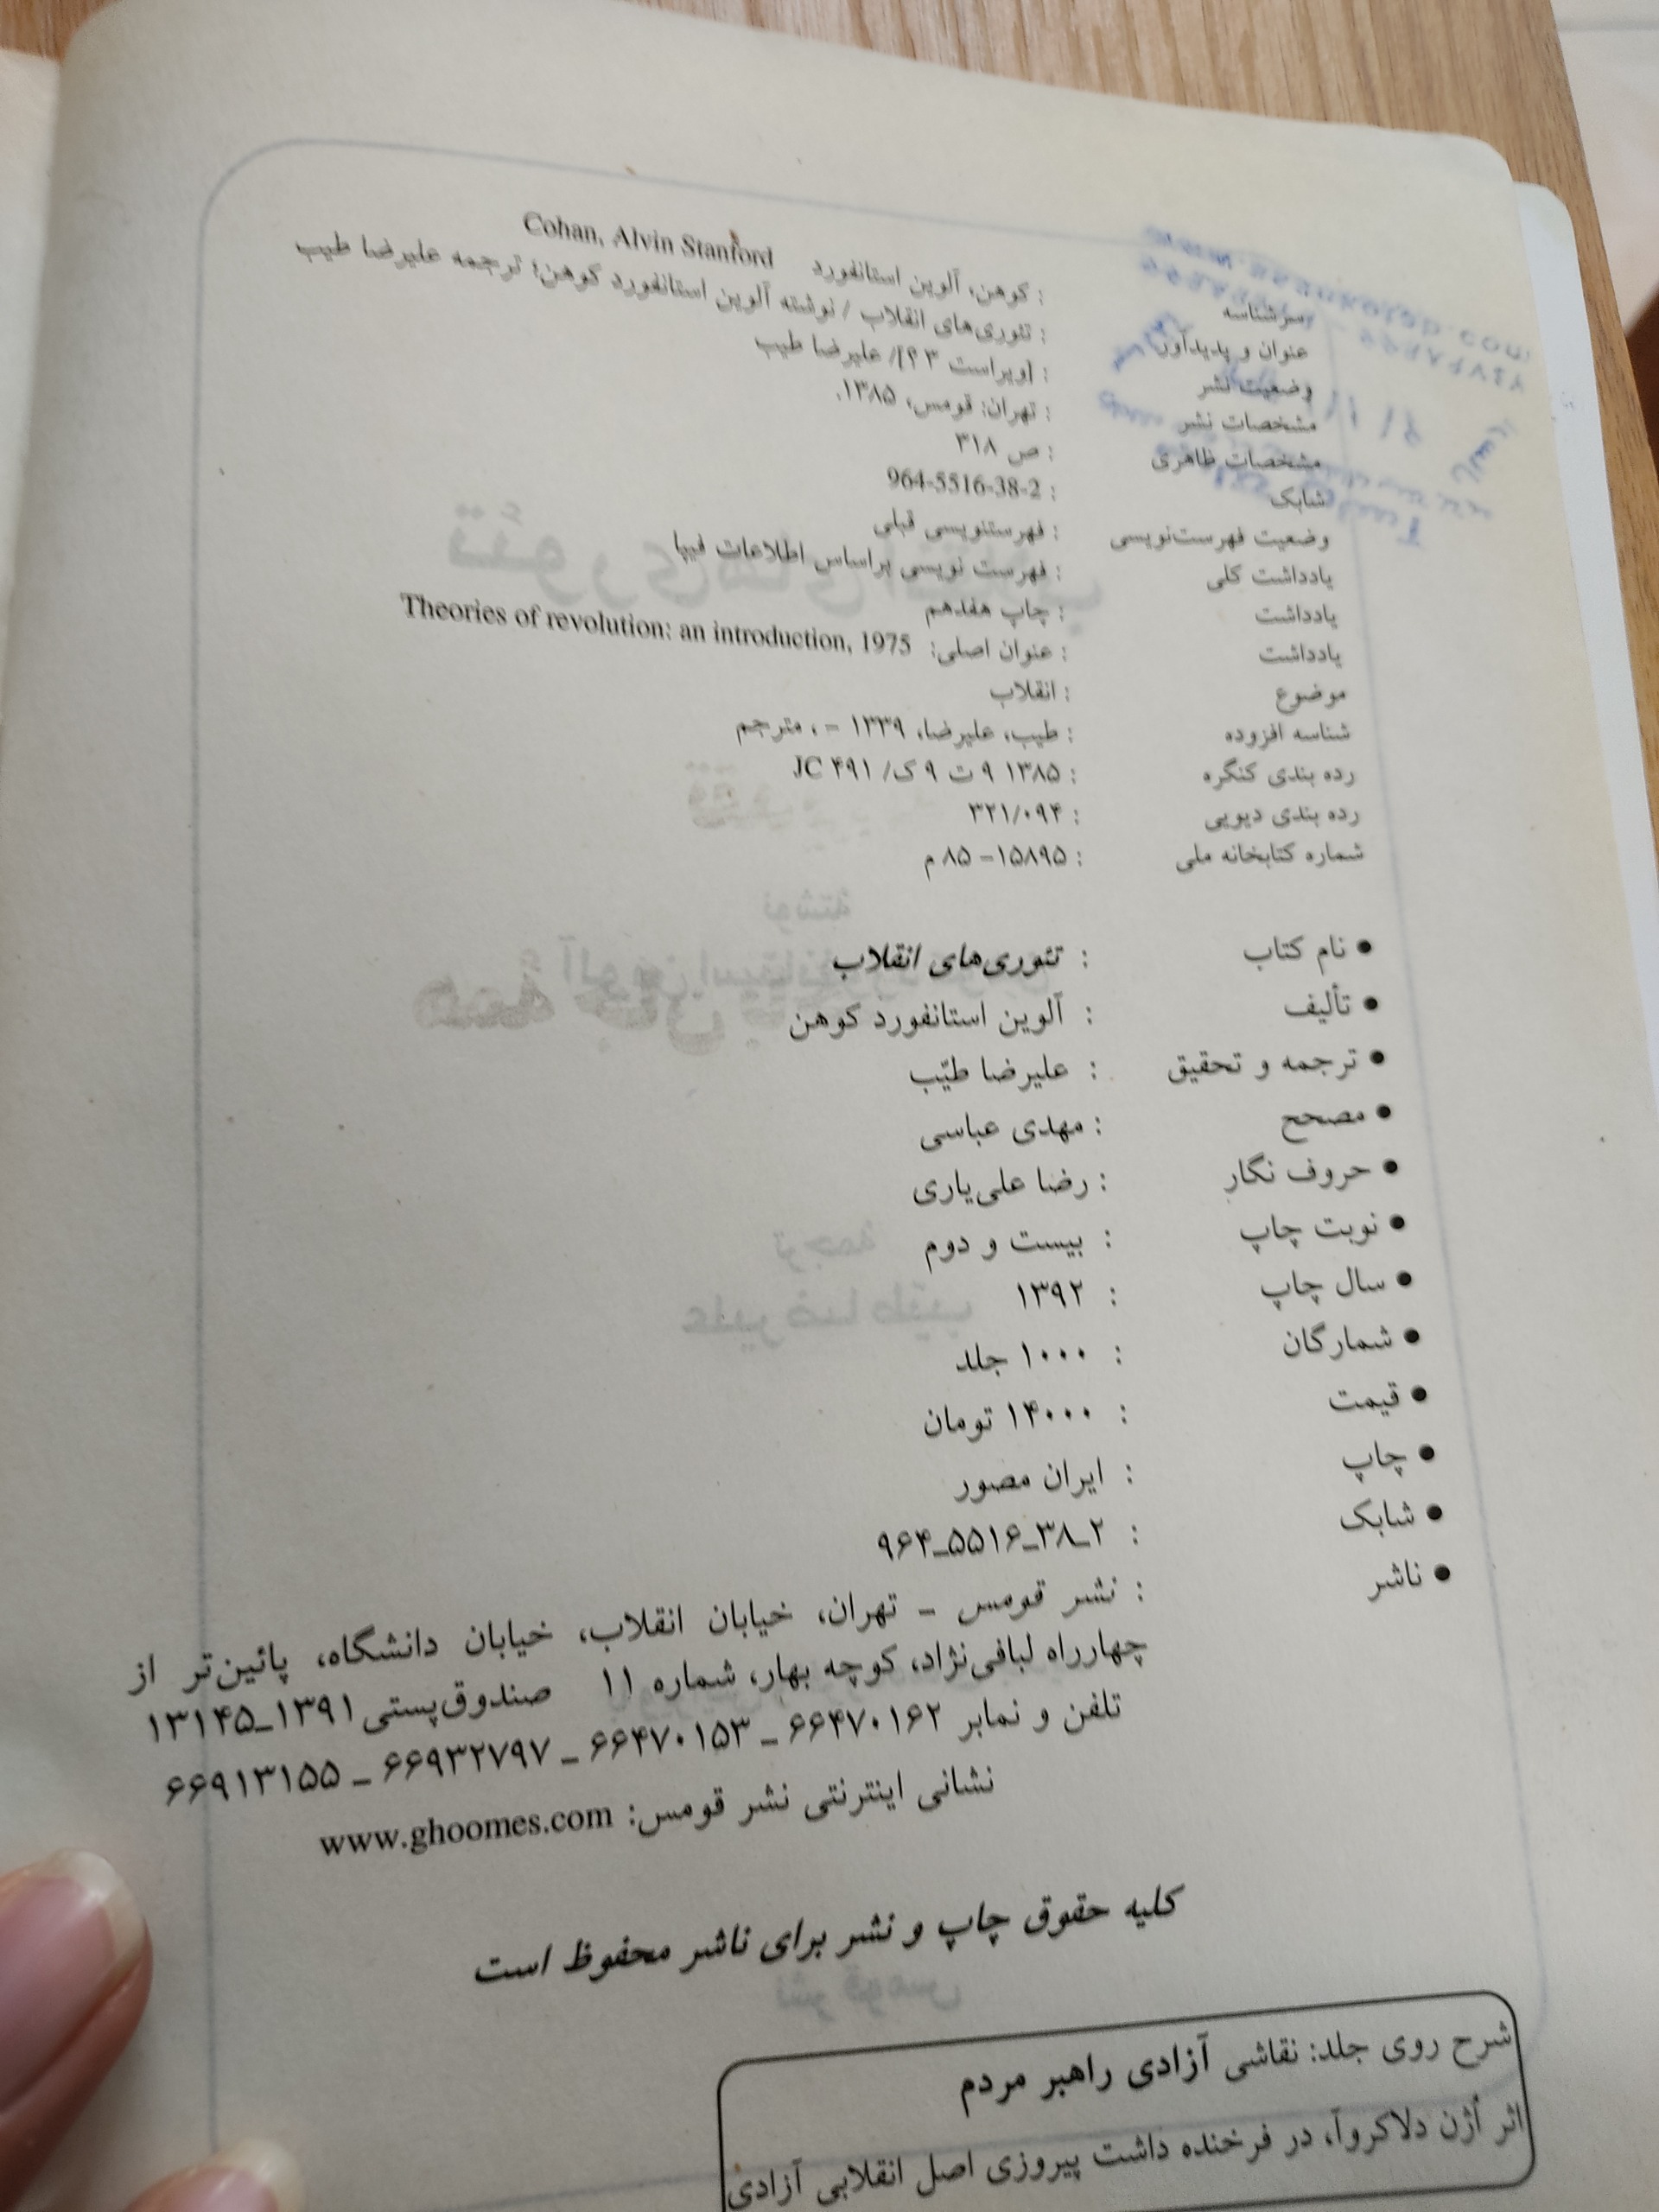 سرشناسه : کوهن، آلوین استانفورد Cohan, Alvin Stanford
عنوان و پدیدآور : تئوری‌های انقلاب / نوشته آلوین استانفورد کوهن؛ ترجمه علیرضا طیب
وضعیت نشر : [ویراست ۳؟]/ علیرضا طیب
مشخصات نشر : تهران: قومس، ۱۳۸۵.
مشخصات ظاهری : ص ۳۱۸
شابک : 964-5516-38-2
وضعیت فهرست‌نویسی : فهرستنویسی قبلی
یادداشت کلی : فهرست نویسی براساس اطلاعات فیپا
یادداشت : چاپ هفدهم
یادداشت : عنوان اصلی: Theories of revolution: an introduction, 1975
موضوع : انقلاب
شناسه افزوده : طیب، علیرضا، ۱۳۳۹ - ، مترجم
رده بندی کنگره : ۱۳۸۵ ۹ ت ۹ ک/ ۴۹۱ JC
رده بندی دیویی : ۳۲۱/۰۹۴
شماره کتابخانه ملی : ۱۵۸۹۵- ۸۵ م
● نام کتاب : تئوری‌های انقلاب
● تألیف : آلوین استانفورد کوهن
● ترجمه و تحقیق : علیرضا طیّب
● مصحح : مهدی عباسی
● حروف نگار : رضا علی‌یاری
● نوبت چاپ : بیست و دوم
● سال چاپ : ۱۳۹۲
● شمارگان : ۱۰۰۰ جلد
● قیمت : ۱۴۰۰۰ تومان
● چاپ : ایران مصور
● شابک : ۲ـ۳۸ـ۵۵۱۶ـ۹۶۴
● ناشر : نشر قومس - تهران، خیابان انقلاب، خیابان دانشگاه، پائین‌تر از
چهارراه لبافی‌نژاد، کوچه بهار، شماره ۱۱ صندوق‌پستی ۱۳۹۱ـ۱۳۱۴۵
تلفن و نمابر ۶۶۴۷۰۱۶۲ ـ ۶۶۴۷۰۱۵۳ ـ ۶۶۹۳۲۷۹۷ ـ ۶۶۹۱۳۱۵۵
نشانی اینترنتی نشر قومس: www.ghoomes.com
کلیه حقوق چاپ و نشر برای ناشر محفوظ است
شرح روی جلد: نقاشی آزادی راهبر مردم
اثر أژن دلاکروآ، در فرخنده داشت پیروزی اصل انقلابی آزادی